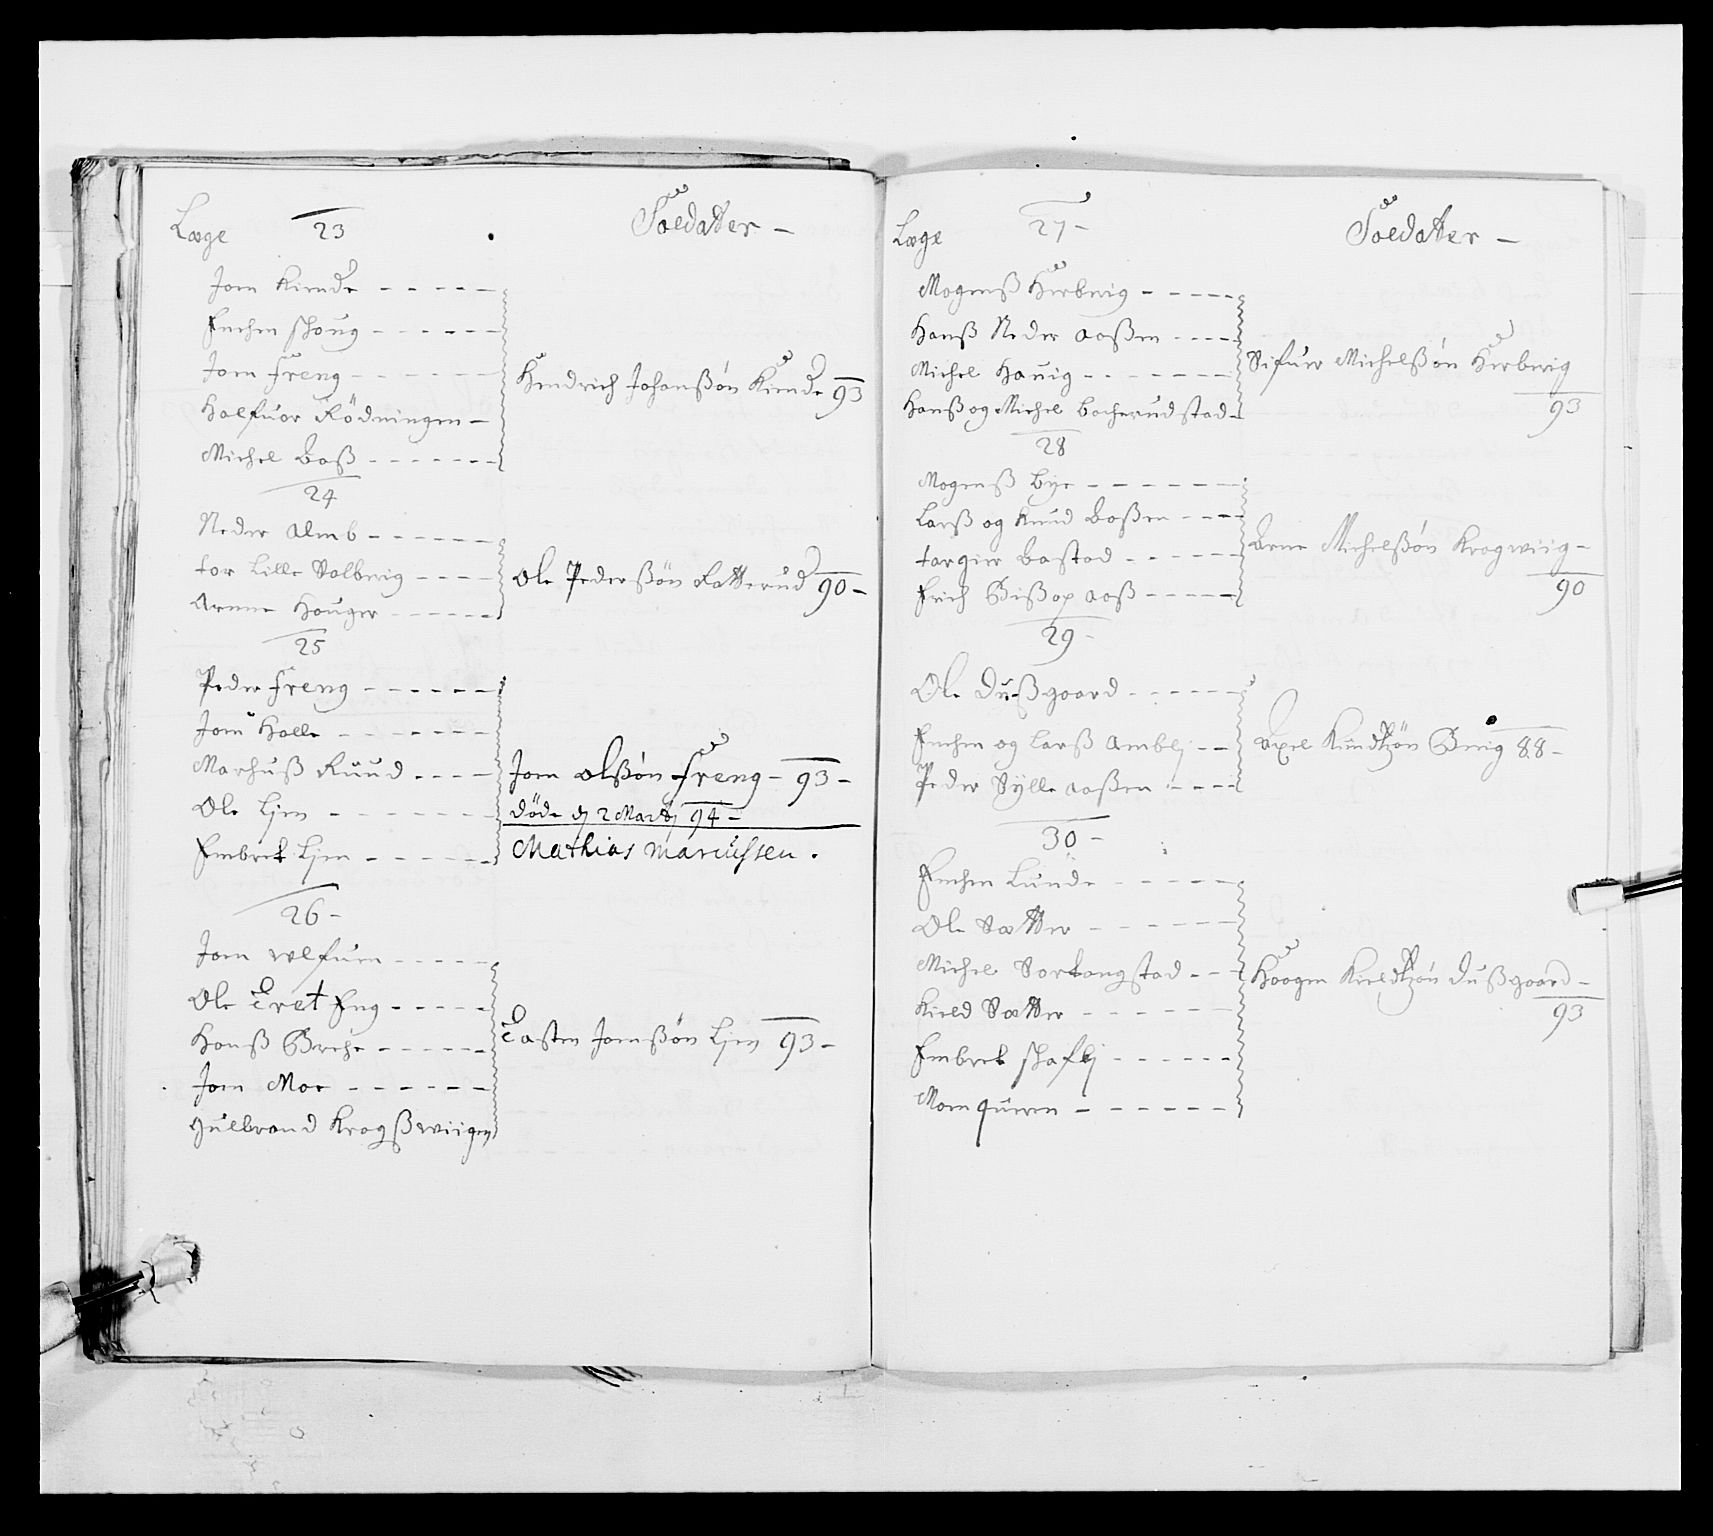 Læge 23 Soldatter -
Joen Kiende
Enchen Schoug
Joen Freng
Halfuor Rödningen
Michel Boeß
Hendrich Johanßön Kiende 93
24
Neder Almb
Tor Lille Solberig
Arnne Houger
Ole Pederßön Fatterud 90 -
25
Peder Freng
Joen Holle
Marhuß Ruud
Ole Lien
Embret Lien
Joen Olßön Freng - 93 -
döde d 2 Martj 94 -
Mathias Marcussen.
26 -
Joen Ulfuen
Ole Tret Eng
Hanß Brche
Joen Moe
Gulbrand Krogßwiigen
Tosten Joenßön Lien 93 -
Læge 27 - Soldatter -
Mogenß Herberig
Hanß Neder Aaßen
Michel Hauig
Hanß og Michel Bacherudstad
Sifuer Michelßön Herberig
93
28
Mogenß Bye
Larß og Knud Boßen
Torgier Bastad
Erich Bißop Aaß
Arne Michelßön Krogwiig -
90
29 -
Ole Dußgaard
Enchen og Larß Amblj
Peder Sylle Aaßen
Axel Knudtzön Brig 88 -
30 -
Enchen Lunde
Ole Sætter
Michel Sortangstad
Kield Sætter
Embret Schaflj
Moen Quern
Haagen Kieldtzön Dußgaard -
93